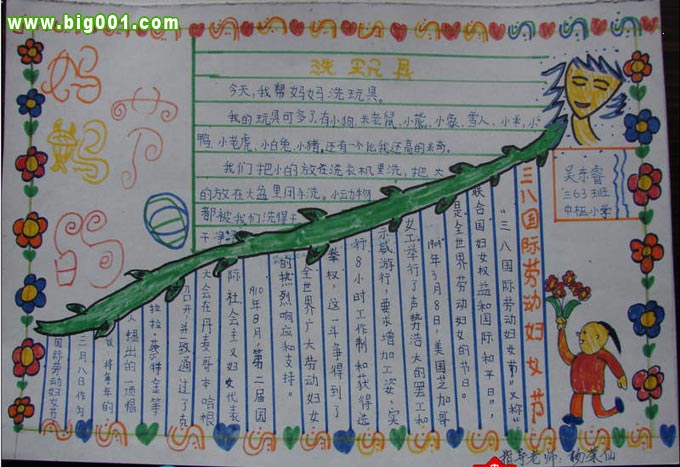 www.big001.com
妈妈的节日
洗玩具
今天,我帮妈妈洗玩具。
我的玩具可多了,有小狗、米老鼠、小熊、小象、雪人、小羊、小
鸭、小老虎、小白兔、小猪,还有一个比我还高的米奇。
我们把小的放在洗衣机里洗,把大
的放在大盆里用手洗。小动物
都被我们洗得干
干净净
三八国际劳动妇女节
“三八国际劳动妇女节”又称
“联合国妇女权益和国际和平日”,
是全世界劳动妇女的节日。
1909年3月8日,美国芝加哥
女工举行了声势浩大的罢工和
示威游行,要求增加工资,实
行8小时工作制和获得选
举权,这一斗争得到了
全世界广大劳动妇女
的热烈响应和支持。
1910年8月,第二届国
际社会主义妇女代表
大会在丹麦哥本哈根
召开,并一致通过了克
拉拉·蔡特金等
人提出的一项倡
议,将每年的
三月八日作为
国际劳动妇女节
吴东睿
三(3)班
中枢小学
指导老师:杨荣仙